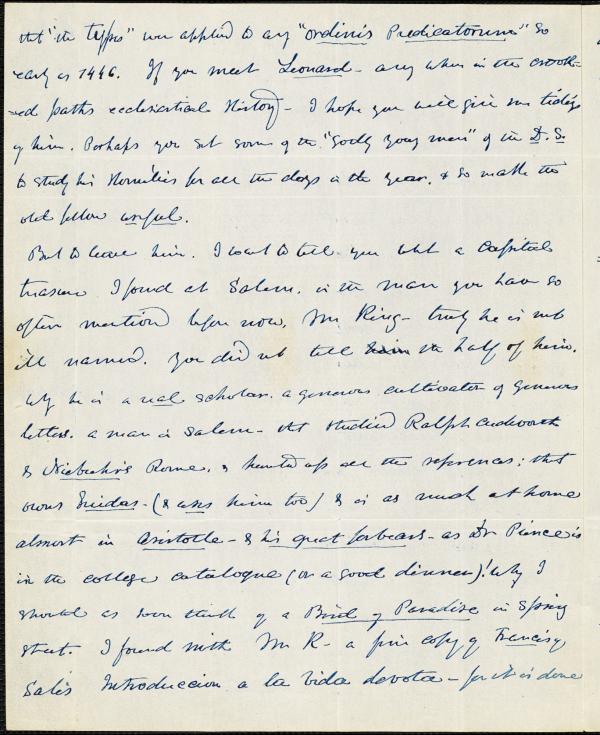 that "the types" were applied to any "ordinis Predicatorum" so
early as 1446. If you meet Leonard - any where in the crook-
-ed paths ecclesiastical History - I hope you will give me tidings
of him. Perhaps you set some of the "Godly young men" of the D. S.
to study his Homilies for all the days in the year, & so make the
old fellow useful.
But to leave him. I want to tell you what a capital
treasure I found at Salem, in the man you have so
often mentioned before now, Mr King - truly he is not
ill named. You did not tell him the half of him.
Why he is a real scholar. a generous cultivator of generous
letters. a man in Salem - that studied Ralph Cudworth
& Niebuhr's Rome, & hunted up all the references; that
owns Suidas - (& uses him too) & is as much at home
almost in Aristotle - & his great forbears - as Dr Pierce is
in the college catalogue (or a good dinner)! Why I
should as soon think of a Bird of Paradise in Spring
street. I found with Mr K - a fine copy of Francisco
Sales Introduccion a la Vida devota - for it is done